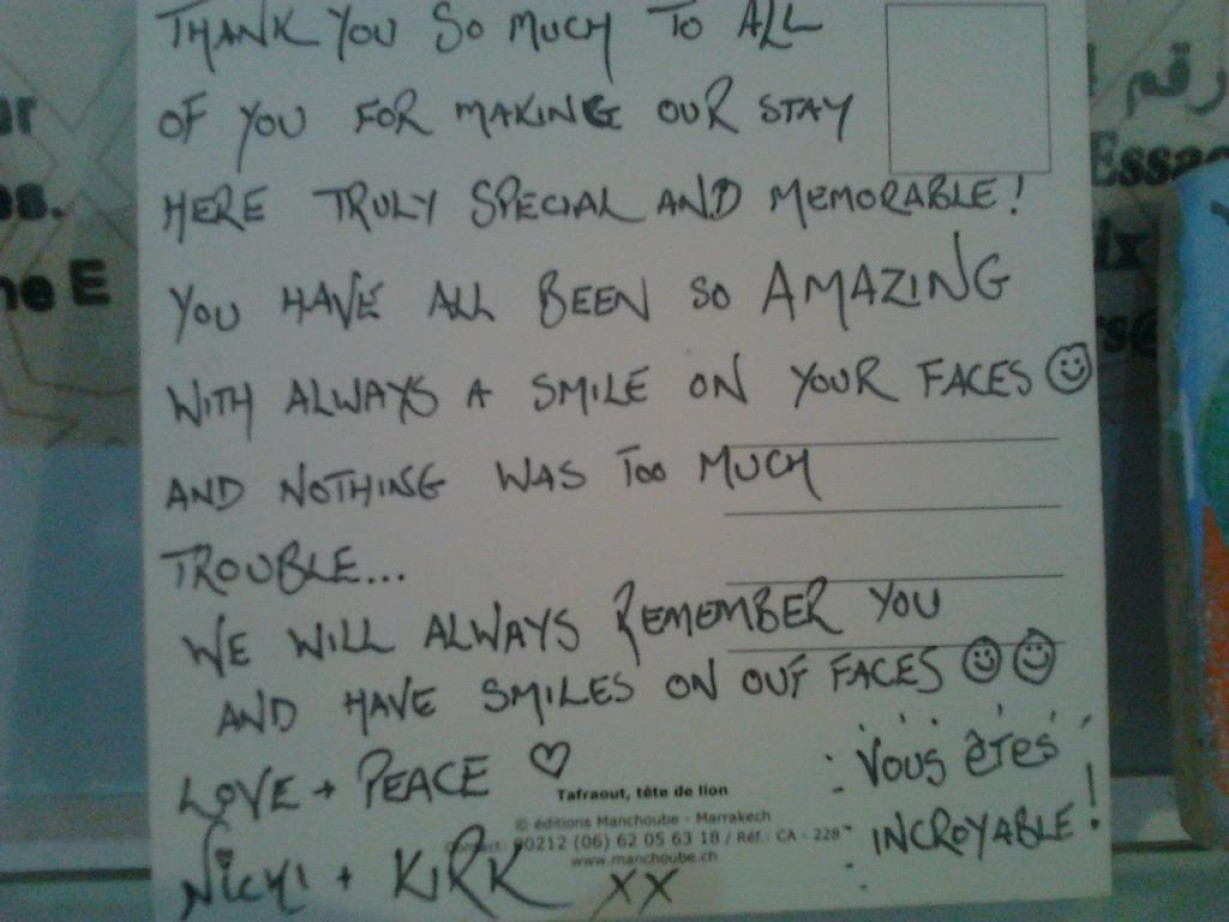 THANK YOU SO MUCH TO ALL
OF YOU FOR MAKING OUR STAY
HERE TRULY SPECIAL AND MEMORABLE!
YOU HAVE ALL BEEN SO AMAZING
WITH ALWAYS A SMILE ON YOUR FACES ☺
AND NOTHING WAS TOO MUCH
TROUBLE...
WE WILL ALWAYS REMEMBER YOU
AND HAVE SMILES ON OUR FACES ☺☺
LOVE + PEACE ♡
Nicki + KIRK XX
Vous êtes
INCROYABLE!
Tafraout, tête de lion
© éditions Manchoube - Marrakech
00212 (06) 62 05 63 18 / Réf.: CA - 228
www.manchoube.ch
رقم